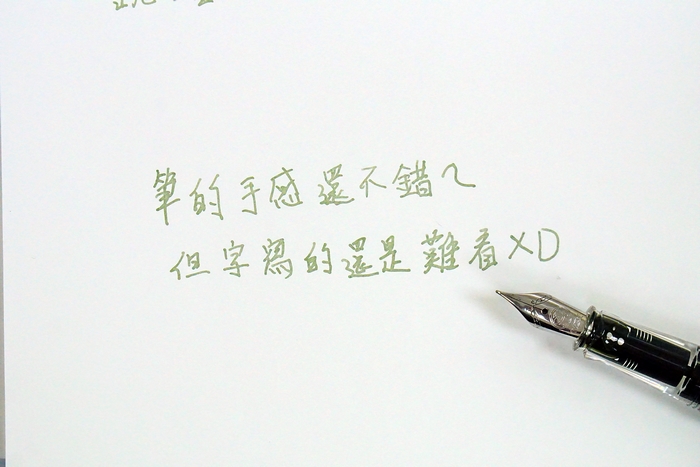 筆的手感還不錯~
但字寫的還是難看XD